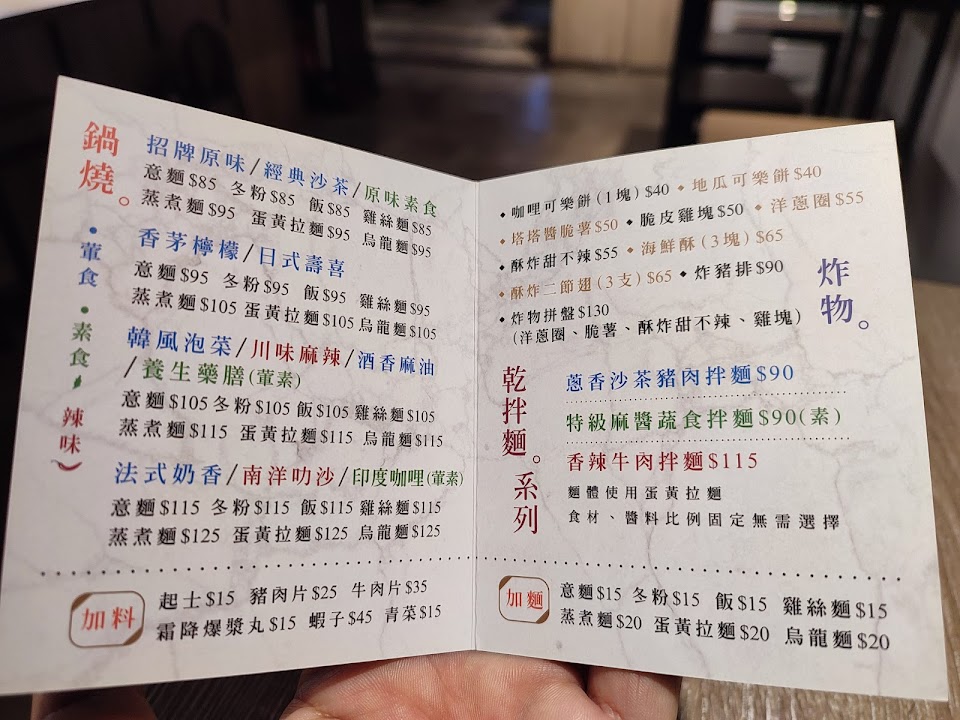 鍋燒。
•葷食 •素食 辣味
招牌原味/經典沙茶/原味素食
意麵$85 冬粉$85 飯$85 雞絲麵$85
蒸煮麵$95 蛋黃拉麵$95 烏龍麵$95
香茅檸檬/日式壽喜
意麵$95 冬粉$95 飯$95 雞絲麵$95
蒸煮麵$105 蛋黃拉麵$105 烏龍麵$105
韓風泡菜/川味麻辣/酒香麻油
/養生藥膳(葷素)
意麵$105 冬粉$105 飯$105 雞絲麵$105
蒸煮麵$115 蛋黃拉麵$115 烏龍麵$115
法式奶香/南洋叻沙/印度咖哩(葷素)
意麵$115 冬粉$115 飯$115 雞絲麵$115
蒸煮麵$125 蛋黃拉麵$125 烏龍麵$125
加料
起士$15 豬肉片$25 牛肉片$35
霜降爆漿丸$15 蝦子$45 青菜$15
炸物。
◆咖哩可樂餅(1塊)$40 ◆地瓜可樂餅$40
◆塔塔醬脆薯$50 ◆脆皮雞塊$50 ◆洋蔥圈$55
◆酥炸甜不辣$55 ◆海鮮酥(3塊)$65
◆酥炸二節翅(3支)$65 ◆炸豬排$90
◆炸物拼盤$130
(洋蔥圈、脆薯、酥炸甜不辣、雞塊)
乾拌麵。系列
蔥香沙茶豬肉拌麵$90
特級麻醬蔬食拌麵$90(素)
香辣牛肉拌麵$115
麵體使用蛋黃拉麵
食材、醬料比例固定無需選擇
加麵
意麵$15 冬粉$15 飯$15 雞絲麵$15
蒸煮麵$20 蛋黃拉麵$20 烏龍麵$20